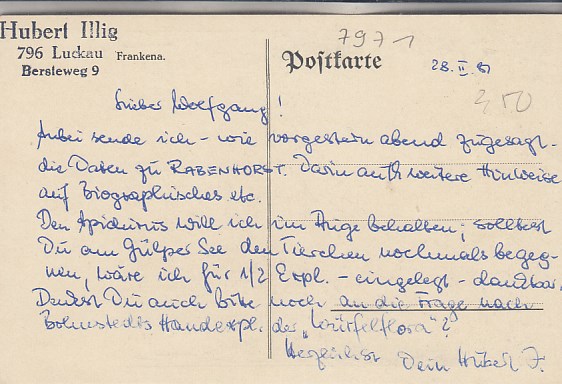 Hubert Illig
796 Luckau Frankena.
Bersteweg 9
7971
Postkarte
28. II. 81
2,50
Lieber Wolfgang!
Anbei sende ich - wie vorgestern abend zugesagt -
die Daten zu RABENHORST. Darin auch weitere Hinweise
auf Biographisches etc.
Den will ich im Auge behalten; solltest
Du am Gülper See den Tierchen nochmals begeg-
nen, wäre ich für 1/2 Expl. - eingelegt - dankbar.
Denkst Du auch bitte noch an die Frage nach
Bolnstedts Handexpl. der "Würfelflora"?
Herzlichst Dein Hubert J.